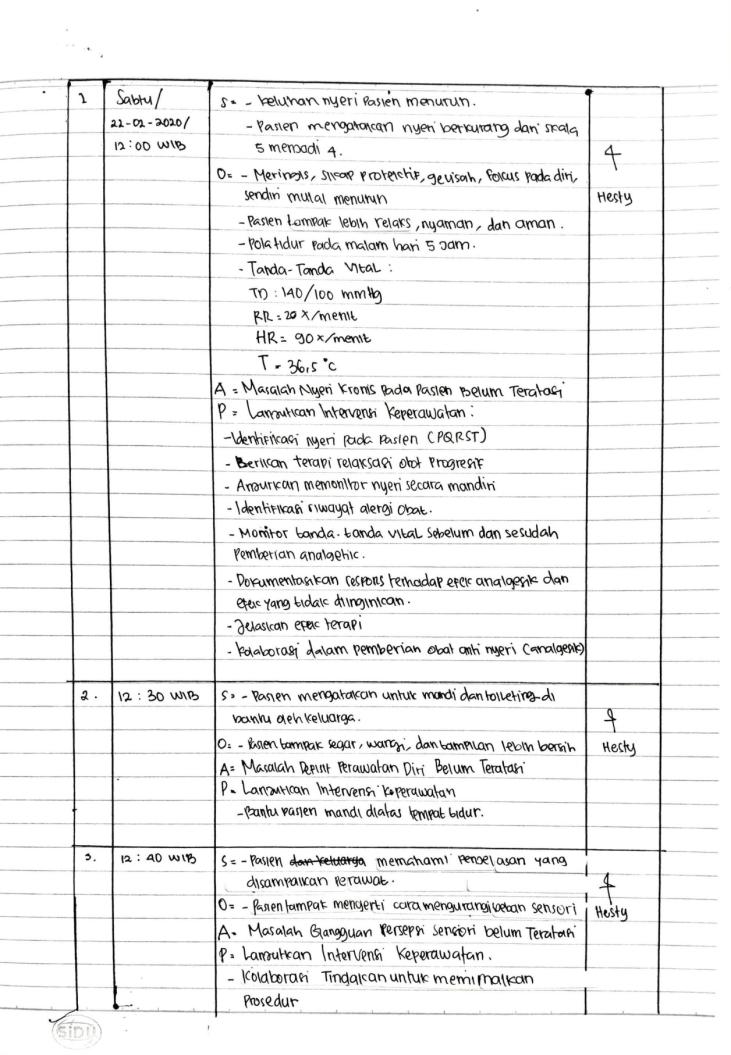 1 Sabtu/ S = - keluhan nyeri Pasien menurun.
22-02-2020/ - Pasien mengatakan nyeri berkurang dari skala
12:00 WIB 5 menjadi 4.
O= - Meringis, sikap protektif, gelisah, fokus pada diri,
Hesty
sendiri mulai menurun
- Pasien tampak lebih relaks, nyaman, dan aman.
- Pola tidur pada malam hari 5 Jam.
- Tanda-Tanda Vital :
TD : 140/100 mmHg
RR = 20 x/menit
HR = 90 x/menit
T = 36,5 °C
A = Masalah Nyeri Kronis Pada Pasien Belum Teratasi
P = Lanjutkan Intervensi Keperawatan :
- Identifikasi nyeri pada Pasien (PQRST)
- Berikan terapi relaksasi otot Progresif
- Anjurkan memonitor nyeri secara mandiri
- Identifikasi riwayat alergi Obat.
- Monitor tanda-tanda vital sebelum dan sesudah
Pemberian analgetic.
- Dokumentasikan respons terhadap efek analgesik dan
efek yang tidak diinginkan.
- Jelaskan efek terapi
- Kolaborasi dalam pemberian obat anti nyeri (analgesik)
2. 12 : 30 WIB S = - Pasien mengatakan untuk mandi dan toileting di
bantu oleh keluarga.
O= - Pasien tampak segar, wangi, dan tampilan lebih bersih
Hesty
A = Masalah Defisit Perawatan Diri Belum Teratasi
P = Lanjutkan Intervensi Keperawatan
- Bantu pasien mandi diatas tempat tidur.
3. 12 : 40 WIB S = - Pasien dan keluarga memahami penjelasan yang
disampaikan Perawat.
O= - Pasien tampak mengerti cara mengurangi beban sensori
Hesty
A = Masalah Gangguan Persepsi Sensori belum Teratasi
P = Lanjutkan Intervensi Keperawatan.
- Kolaborasi Tindakan untuk memimalkan
Prosedur
SIDU